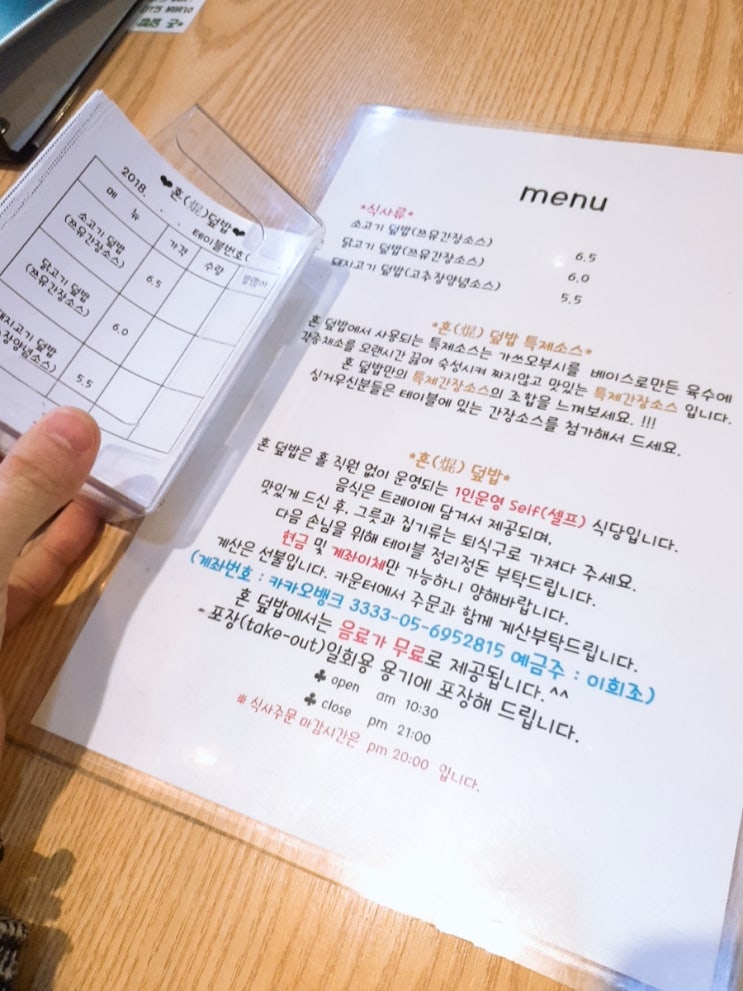 ❤혼(焜)덮밥❤
2018. . . 테이블번호(
메 뉴 가격 수량
소고기 덮밥
(쯔유간장소스) 6.5
닭고기 덮밥
(쯔유간장소스) 6.0
돼지고기 덮밥
추장양념소스) 5.5
menu
*식사류*
소고기 덮밥(쯔유간장소스) 6.5
닭고기 덮밥(쯔유간장소스) 6.0
돼지고기 덮밥(고추장양념소스) 5.5
*혼(焜) 덮밥 특제소스*
혼 덮밥에서 사용되는 특제소스는 가쓰오부시를 베이스로만든 육수에
각종채소를 오랜시간 끓여 숙성시켜 짜지않고 맛있는 특제간장소스 입니다.
혼 덮밥만의 특제간장소스의 조합을 느껴보세요. !!!
싱거우신분들은 테이블에 있는 간장소스를 첨가해서 드세요.
*혼(焜) 덮밥*
혼 덮밥은 홀 직원 없이 운영되는 1인운영 Self(셀프) 식당입니다.
음식은 트레이에 담겨서 제공되며,
맛있게 드신 후, 그릇과 집기류는 퇴식구로 가져다 주세요.
다음 손님을 위해 테이블 정리정돈 부탁드립니다.
현금 및 계좌이체만 가능하니 양해바랍니다.
계산은 선불입니다. 카운터에서 주문과 함께 계산부탁드립니다.
(계좌번호 : 카카오뱅크 3333-05-6952815 예금주 : 이희조)
혼 덮밥에서는 음료가 무료로 제공됩니다.^^
- 포장(take-out)일회용 용기에 포장해 드립니다.
♣ open am 10:30
♣ close pm 21:00
※ 식사주문 마감시간은 pm 20:00 입니다.